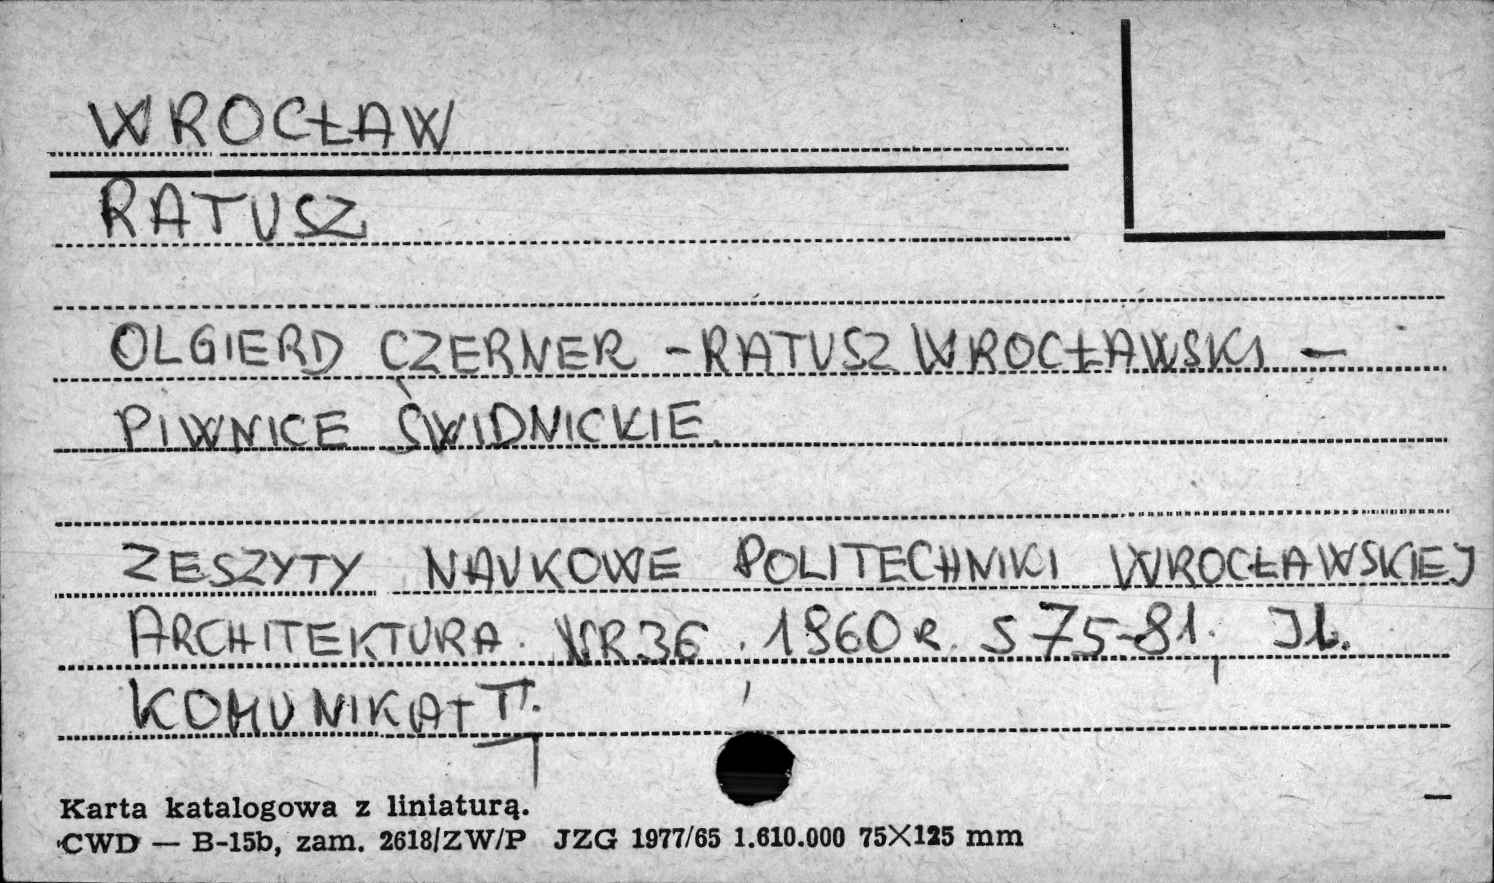 WROCŁAW
RATUSZ
OLGIERD CZERNER - RATUSZ WROCŁAWSKI -
PIWNICE ŚWIDNICKIE.
ZESZYTY NAUKOWE POLITECHNIKI WROCŁAWSKIEJ
ARCHITEKTURA. NR 36. 1960 R. S 75-81, IL.
KOMUNIKAT
Karta katalogowa z liniaturą.
CWD — B-15b, zam. 2618/ZW/P JZG 1977/65 1.610.000 75×125 mm